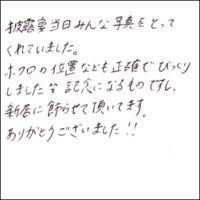 披露宴当日みんな写真をとって
くれていました。
ホクロの位置なども正確でびっくり
しました^^ 記念になるものですし、
新居に飾らせて頂いてます。
ありがとうございました!!